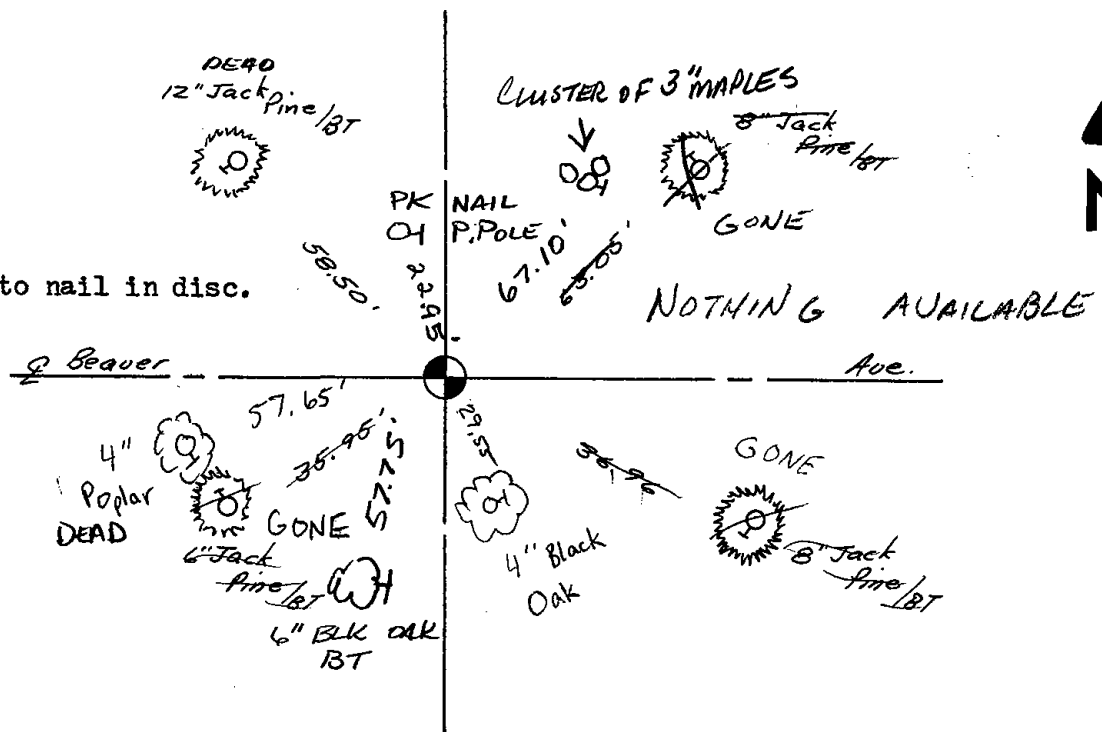 DEAD
12" Jack Pine/BT
CLUSTER OF 3" MAPLES
8" Jack
Pine/BT
GONE
N
PK NAIL
P.POLE
58.50'
22.95'
67.10'
65.05'
to nail in disc.
NOTHING AVAILABLE
℄ Beaver Ave.
57.65'
35.95'
57.75'
29.55
36.96
4"
Poplar
DEAD
GONE
6" Jack
Pine/BT
6" BLK OAK
BT
4" Black
Oak
GONE
8" Jack
Pine/BT